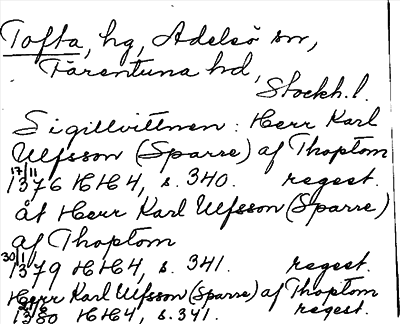 Tofta, hg, Adelsö sn,
Färentuna hd,
Stockh.l.
Sigillvittnen: Herr Karl
Ulfsson (Sparre) af Thoptom
17/11 1376 HH4, s. 340. regest.
åt Herr Karl Ulfsson (Sparre)
af Thoptom
30/1 1379 HH4, s. 341. regest.
Herr Karl Ulfsson (Sparre) af Thoptom
1380 HH4, s. 341. regest.